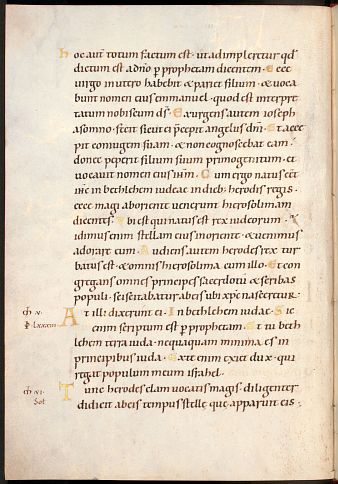 hoc aut totum factum est · ut adimpleretur qd
dictum est adno p prophetam dicentem · Ecce
virgo inutero habebit & pariet filium · & voca
bunt nomen eius emmanuel · quod est interpre
tatum nobiscum ds · Exurgens autem ioseph
asomno · fecit sicut ei pcepit angelus dni · Et accе
pit coniugem suam · & non cognoscebat eam ·
donec peperit filium suum primogenitum · et
vocavit nomen eius ihm · Cum ergo natus eet
ihc in bethlehem iudeae in dieb; herodis regis ·
ecce magi aboriente venerunt hierosolimam
dicentes · Ubi est qui natus est rex iudeorum · Vi
dimus enim stellam eius inoriente · & venimus
adorare eum · Audiens autem herodes rex tur
batus est · & omnis hierosolima cum illo · Et con
gregans omnes principes sacerdotu & scribas
populi · sciscitabatur abeis ubi xpc nasceretur ·
At illi dixerunt ei · In bethlehem iudae · Sic
enim scriptum est p prophetam · Et tu beth
lehem terra iuda · nequaquam minima es in
principibus iuda · Ex te enim exiet dux · qui
regat populum meum israhel ·
Tunc herodes clam vocatis magis · diligenter
didicit abeis tempus stelle que apparuit eis ·
V
VI
Sol